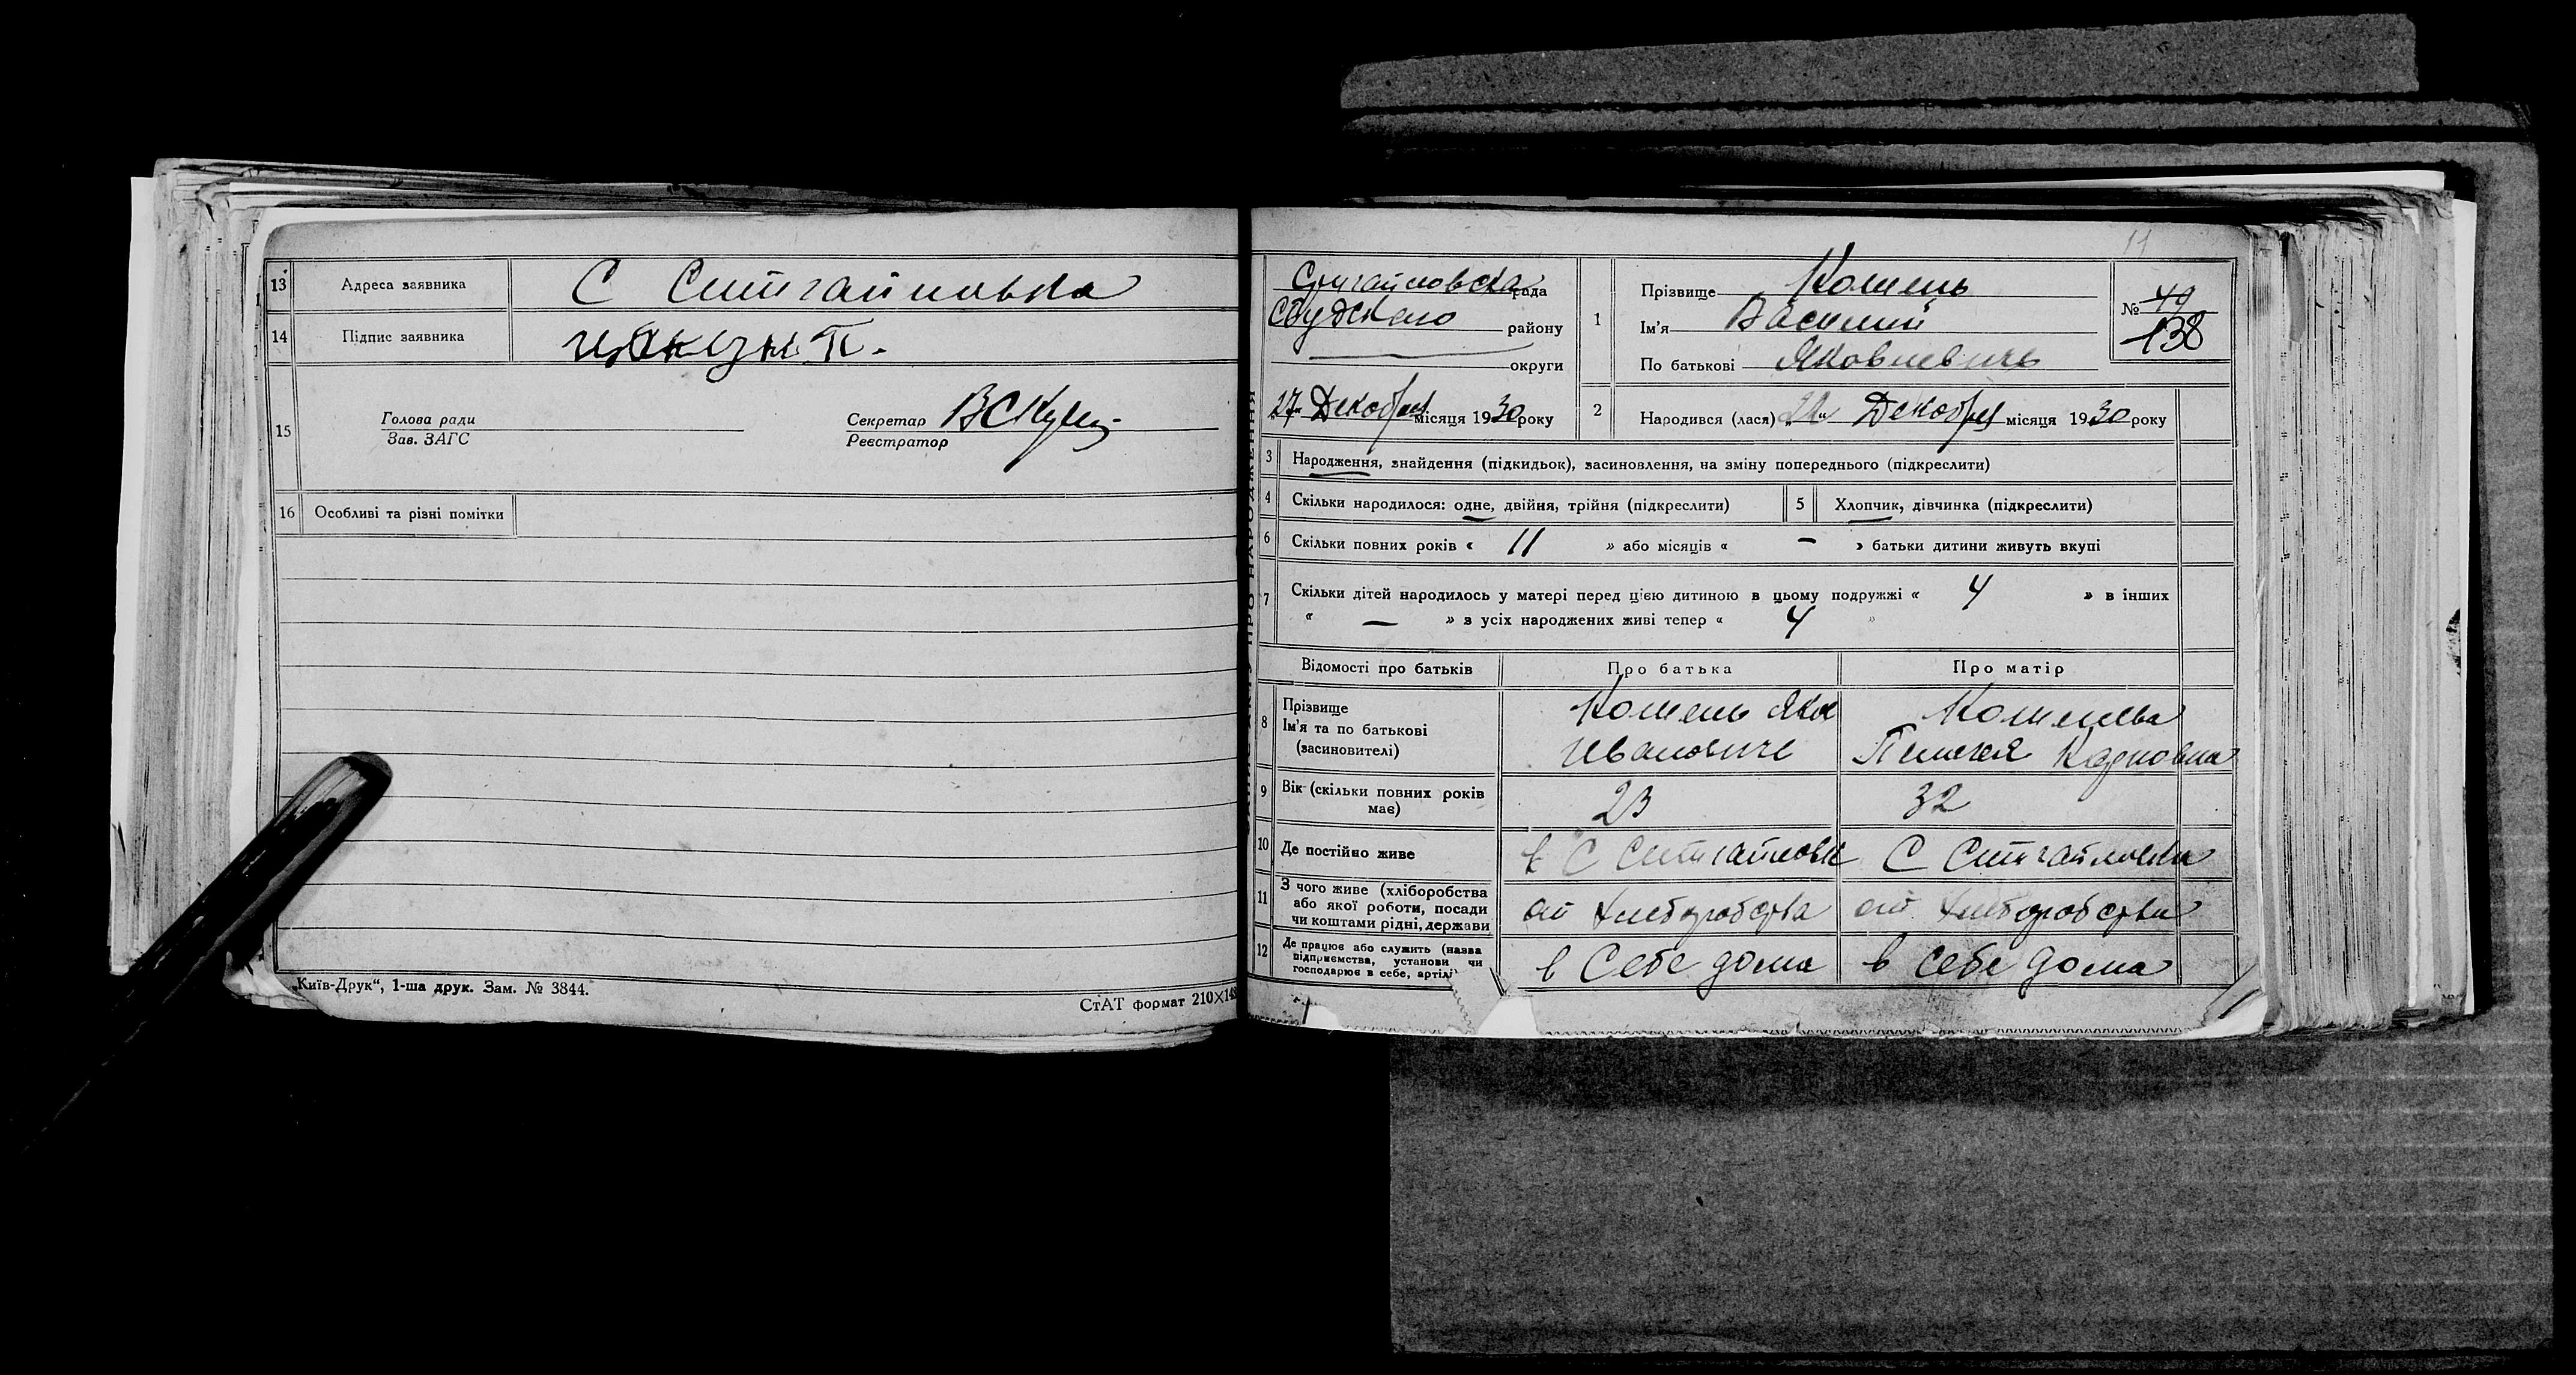 13 Адреса заявника С
14 Підпис заявника
15 Голова ради Секретар
Зав. ЗАГС Реєстратор
16 Особливі та різні помітки
„Київ-Друк“, 1-ша друк. Зам. № 3844.
СтАТ формат 210×148
11
рада
району
округи
27 Декабря місяця 1930 року
1 Прізвище Кошень
Ім’я Василий
По батькові Яковлевичь
№ 49
138
2 Народився (лася) Декабря місяця 1930 року
3 Народження, знайдення (підкидьок), васиновлення, на зміну попереднього (підкреслити)
4 Скільки народилося: одне, двійня, трійня (підкреслити) 5 Хлопчик, дівчинка (підкреслити)
6 Скільки повних років « 11 » або місяців « – » батьки дитини живуть вкупі
7 Скільки дітей народилось у матері перед цією дитиною в цьому подружжі « 4 » в інших
« — » з усіх народжених живі тепер « 4 »
Відомості про батьків Про батька Про матір
8 Прізвище Кошень Яков Кошелева
Ім’я та по батькові
(васиновителі) Ивановичь Пелагея Карповна
9 Вік (скільки повних років має) 23 32
10 Де постійно живе в С С
11 З чого живе (хліборобства
або якої роботи, посади
чи коштами рідні, держави от хлеборобства от хлеборобства
12 Де працює або служить (назва
підприємства, установи чи
господарює в себе, артілі в себе дома в себе дома